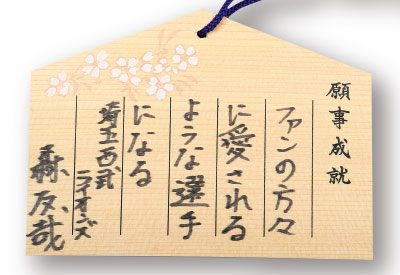 願事成就
ファンの方々
に愛される
ような選手
になる
埼玉西武
ライオンズ
森友哉